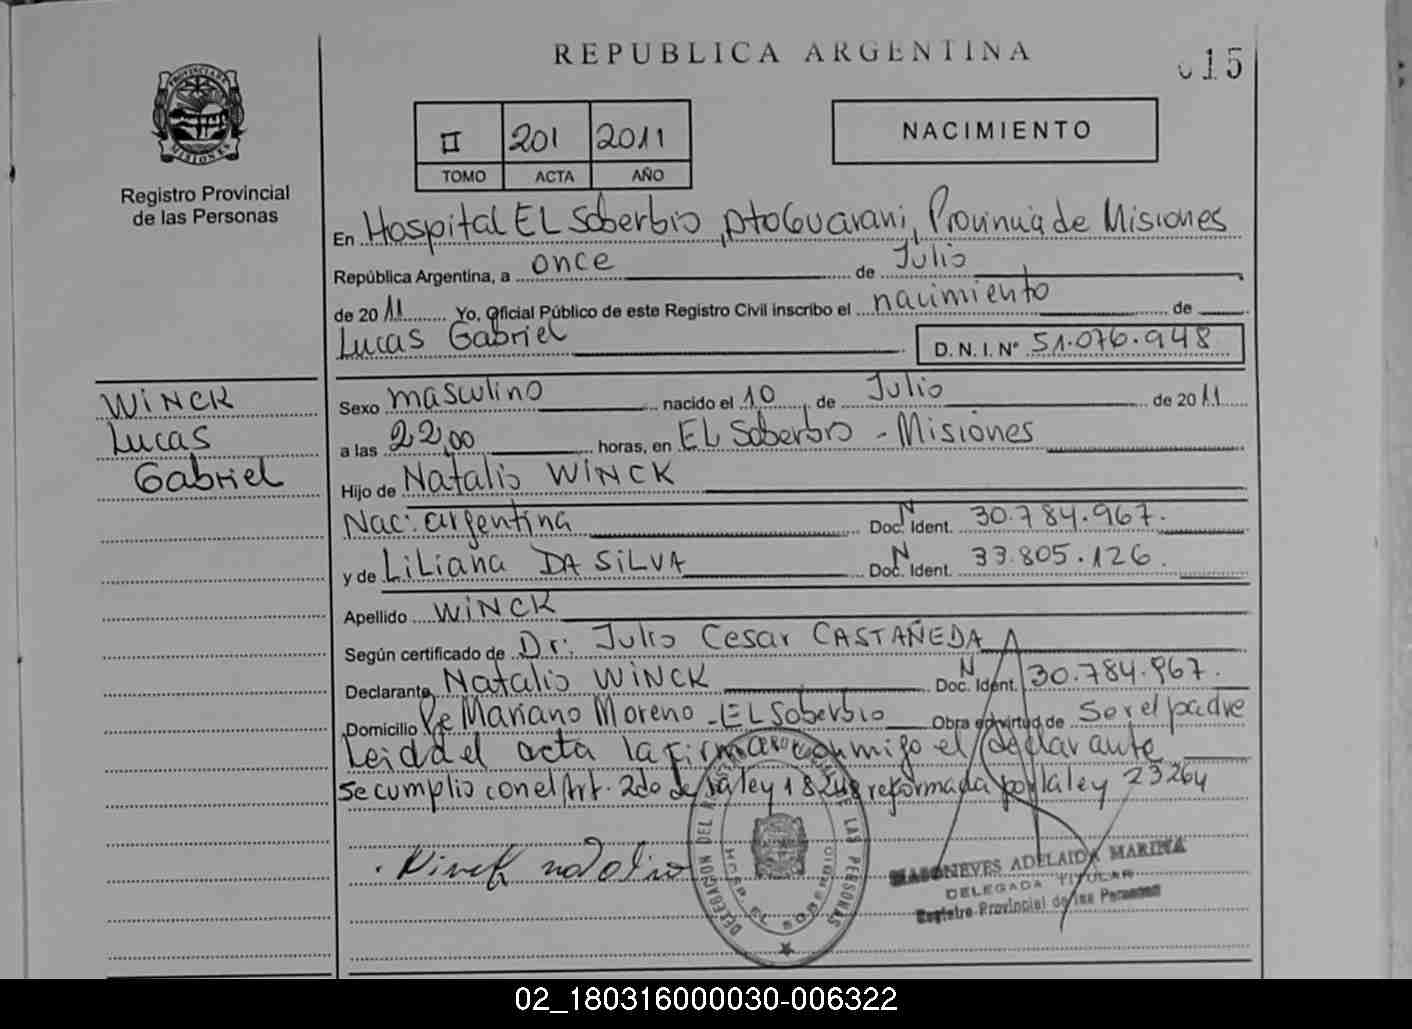 REPUBLICA ARGENTINA
015
II 201 2011
TOMO ACTA AÑO
NACIMIENTO
PROVINCIA DE MISIONES
Registro Provincial
de las Personas
En Hospital EL Soberbio, Dto Guarani, Provincia de Misiones
República Argentina, a once de Julio
de 2011 Yo, Oficial Público de este Registro Civil inscribo el nacimiento de
Lucas Gabriel D. N. I. Nº 51.076.948
WINCK
Lucas
Gabriel
Sexo masculino nacido el 10 de Julio de 2011
a las 22,00 horas, en EL Soberbio - Misiones
Hijo de Natalio WINCK
Nac: argentina Doc. N Ident. 30.784.967.
y de Liliana DA SILVA Doc. N Ident. 33.805.126.
Apellido WINCK
Según certificado de Dr: Julio Cesar CASTAÑEDA
Declarante Natalio WINCK Doc. N Ident. 30.784.967.
Domicilio Pje Mariano Moreno - EL Soberbio Obra en virtud de Ser el padre
Leida el acta la firma conmigo el declarante
Se cumplio con el Art. 2do de la ley 18248 reformada por la ley 23264
Winck natalio
DELEGACION DEL REGISTRO PROVINCIAL DE LAS PERSONAS
HOSP. EL SOBERBIO
NEVES ADELAIDA MARINA
DELEGADA TITULAR
Registro Provincial de las Personas
02_180316000030-006322